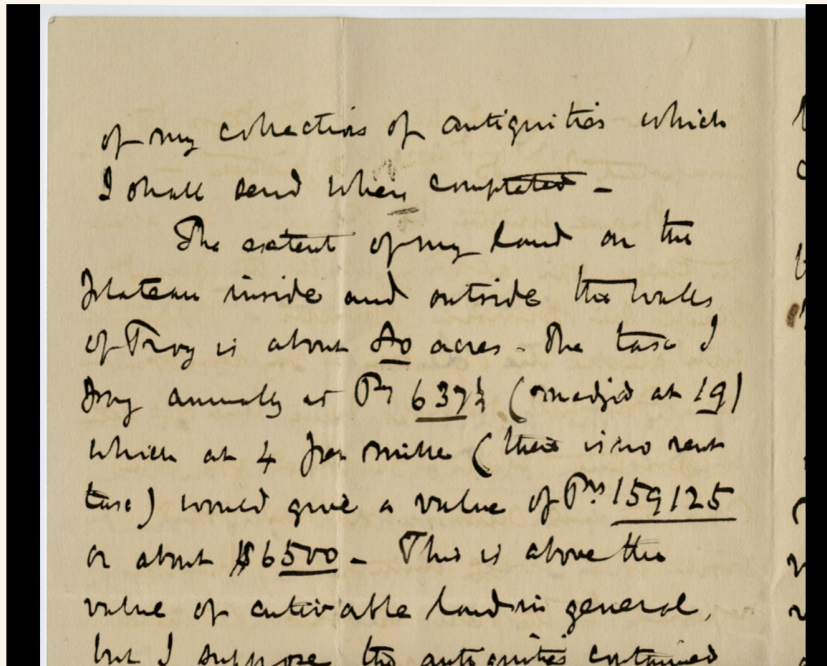 of my collections of antiquities which
I shall send when completed -
The extent of my land on the
plateau inside and outside the walls
of Troy is about 80 acres - The taxe I
pay annually is Prs 637½ (medjid at 19)
which at 4 per mille (there is no rent
taxe) would give a value of Prs 159125
or about $6500 - This is above the
value of cultivable land in general,
but I suppose the antiquities contained